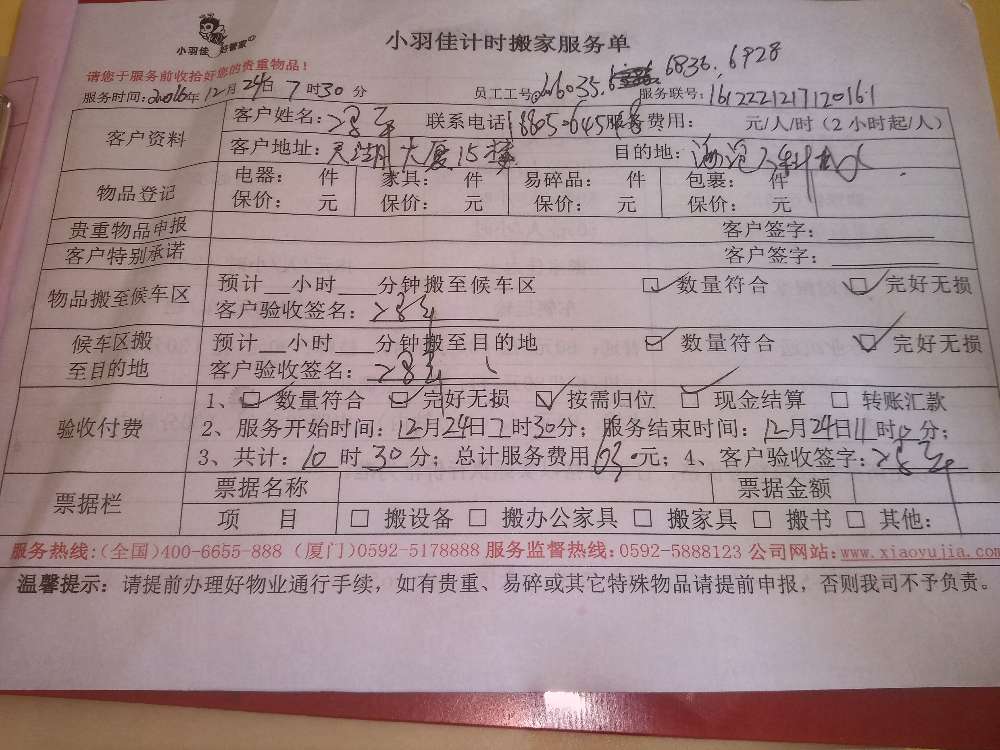 小羽佳 好管家
小羽佳计时搬家服务单
请您于服务前收拾好您的贵重物品!
服务时间:2016年12月24日7时30分 员工工号 6836.6928 服务联号:
客户资料 客户姓名: 联系电话 服务费用: 元/人/时(2小时起/人)
客户地址: 大厦15楼 目的地:
物品登记 电器: 件 家具: 件 易碎品: 件 包裹: 件
保价: 元 保价: 元 保价: 元 保价: 元
贵重物品申报 客户签字:
客户特别承诺 客户签字:
物品搬至候车区 预计__小时___分钟搬至候车区 ☑数量符合 ☑完好无损
客户验收签名:
候车区搬 预计__小时___分钟搬至目的地 ☑数量符合 ☑完好无损
至目的地 客户验收签名:
验收付费 1、☑数量符合 ☑完好无损 ☑按需归位 ☑现金结算 □转账汇款
2、服务开始时间:12月24日7时30分;服务结束时间:12月24日11时0分;
3、共计:10时30分;总计服务费用630元;4、客户验收签字:
票据栏 票据名称 票据金额
项 目 □ 搬设备 □ 搬办公家具 □ 搬家具 □ 搬书 □ 其他:
服务热线:(全国)400-6655-888 (厦门)0592-5178888 服务监督热线:0592-5888123 公司网站:www.xiaoyujia.com
温馨提示:请提前办理好物业通行手续,如有贵重、易碎或其它特殊物品请提前申报,否则我司不予负责。